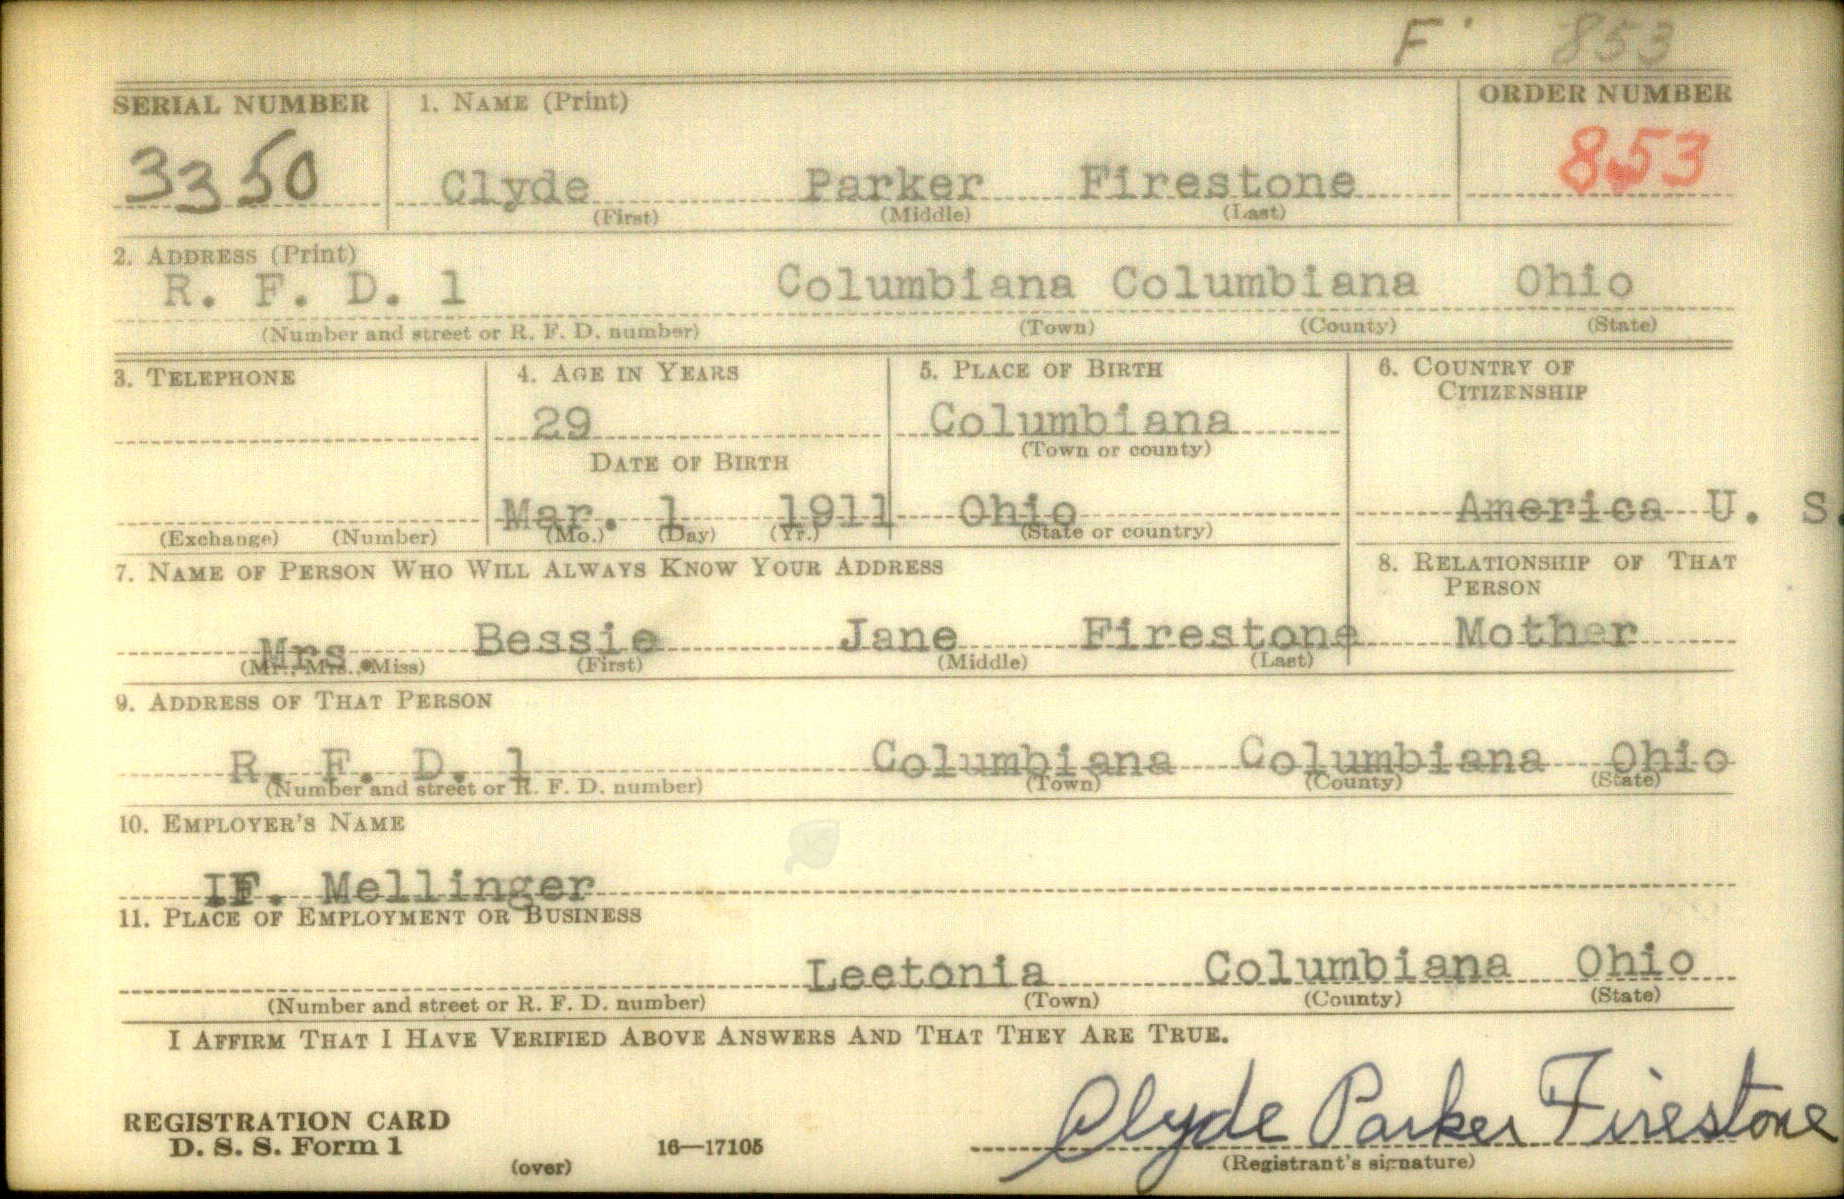 F 853
SERIAL NUMBER 1. NAME (Print) ORDER NUMBER
3350 Clyde Parker Firestone 853
(First) (Middle) (Last)
2. ADDRESS (Print)
R. F. D. 1 Columbiana Columbiana Ohio
(Number and street or R. F. D. number) (Town) (County) (State)
3. TELEPHONE 4. AGE IN YEARS 5. PLACE OF BIRTH 6. COUNTRY OF
CITIZENSHIP
29 Columbiana
(Town or county)
DATE OF BIRTH
Mar. 1 1911 Ohio America U. S.
(Exchange) (Number) (Mo.) (Day) (Yr.) (State or country)
7. NAME OF PERSON WHO WILL ALWAYS KNOW YOUR ADDRESS 8. RELATIONSHIP OF THAT
PERSON
Mrs. Bessie Jane Firestone Mother
(Mr., Mrs., Miss) (First) (Middle) (Last)
9. ADDRESS OF THAT PERSON
R. F. D. 1 Columbiana Columbiana Ohio
(Number and street or R. F. D. number) (Town) (County) (State)
10. EMPLOYER'S NAME
IF. Mellinger
11. PLACE OF EMPLOYMENT OR BUSINESS
Leetonia Columbiana Ohio
(Number and street or R. F. D. number) (Town) (County) (State)
I AFFIRM THAT I HAVE VERIFIED ABOVE ANSWERS AND THAT THEY ARE TRUE.
REGISTRATION CARD
D. S. S. Form 1 16—17105 Clyde Parker Firestone
(over) (Registrant's signature)